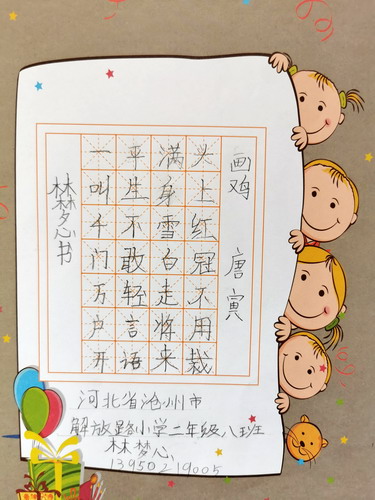 画鸡 唐寅
头上红冠不用裁
满身雪白走将来
平生不敢轻言语
一叫千门万户开
林梦心书
河北省沧州市
解放路小学二年级八班
林梦心
13950219005